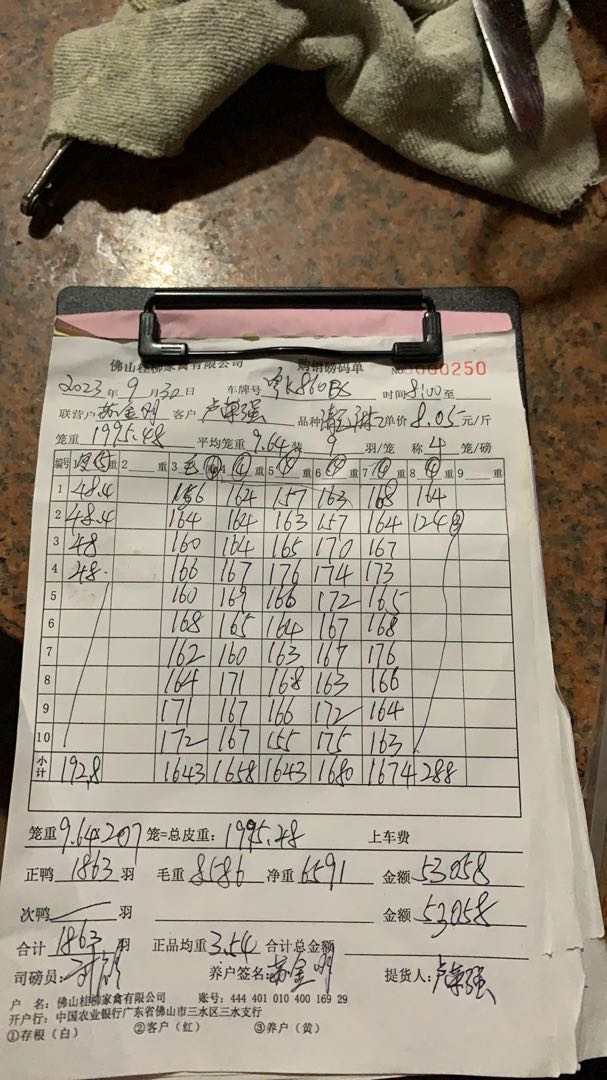 佛山桂柳家禽有限公司 购销磅码单 No 0000250
2023年9月30日 车牌号 粤K860BS 时间8:00至
联营户 客户 卢 强 品种 单价 8.05 元/斤
笼重 1995.48 平均笼重 9.64 装 9 羽/笼 称 4 笼/磅
编号 重 2 重 3 毛 重 4 重 5 重 6 重 7 重 8 重 9 重
1 48.4 156 164 157 163 168 164
2 48.4 164 164 163 157 164 124
3 48 160 164 165 170 167
4 48 166 167 176 174 173
5 160 169 166 172 165
6 168 165 164 167 168
7 162 160 163 167 176
8 164 171 168 163 166
9 171 167 166 172 164
10 172 167 155 175 163
小计 192.8 1643 1658 1643 1680 1674 288
笼重 9.64×207 笼=总皮重: 1995.48 上车费
正鸭 1863 羽 毛重 8586 净重 6591 金额 53058
次鸭 羽 金额 53058
合计 1863 羽 正品均重 3.54 合计总金额
司磅员: 养户签名: 提货人: 卢 强
户 名: 佛山桂柳家禽有限公司 账号: 444 401 010 400 169 29
开户行: 中国农业银行广东省佛山市三水区三水支行
①存根(白) ②客户(红) ③养户(黄)